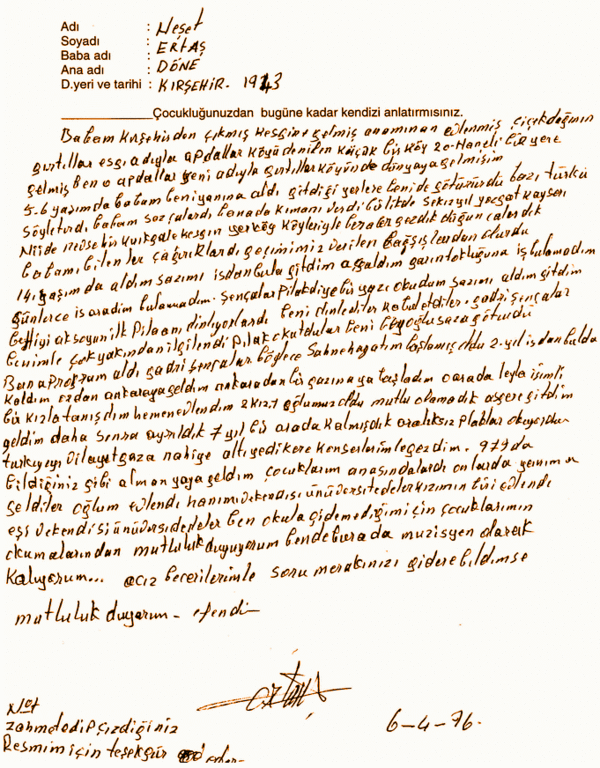 Adı : Neşet
Soyadı : ERTAŞ
Baba adı :
Ana adı : DÖNE
D.yeri ve tarihi : KIRŞEHİR. 1943
Çocukluğunuzdan bugüne kadar kendizi anlatırmısınız.
Babam Kırşehirden çıkmış Keskine gelmiş anamınan evlenmiş çiçekdağının
gırtıllar esgi adıyla apdallar köyü denilen küçük bir köy 20-Haneli bir yere
gelmiş ben o apdallar yeni adıyla gırtıllar köyünde dünyaya gelmişim
5-6 yaşımda babam beni yanına aldı gitdiği yerlere beni de götürürdü bazı türkü
söyletirdi babam saz çalardı banada kımanı verdi birlikde sekiz yıl yozgat kayseri
Niide kırıkgale kesgin yerköy köyleriyle beraber gezdik düğün çalardık
babamı bilenler çağırırlardı geçimimiz verilen bağşışlardan olurdu
14. yaşımda aldım sazımı isdanbula gitdim aç galdım garın tokluğuna iş bulamadım
günlerce iş aradım bulamadım. Şençalar Pilak diye bir yazı okudum sazımı aldım gitdim
Behiyi aksoyun ilk Pilaanı dinliyorlardı beni dinlediler kabul etdiler. gadri şençalar
benimle çok yakından ilgilendi Pilak okutdular beni Beyoğlu saza götürdü
Bana Program aldı gadri şençalar böylece Sahne hayatım başlamış oldu 2-yıl isdanbulda
kaldım ordan ankaraya geldim ankaradan bir gazinaya başladım orada leyla isimli
bir kızla tanışdım hemen evlendim 2 kız, 1 oğlumuz oldu mutlu olamadık asgere gitdim
geldim daha sonra ayrıldık 7 yıl bir arada kalmışdık aralıksız plaklar okuyordum
türkiyeyi vilayet gaza nahiye altı yedi kere konserlerimle gezdim. 979 da
bildiğiniz gibi almanyaya geldim çocuklarım anasındalardı onlarda yanıma
geldiler oğlum evlendi hanımı ve kendisi ünüversitedeler kızımın biri evlendi
eşi ve kendisi ünüversidedeler ben okula gidemediğimi için çocuklarımın
okumalarından mutluluk duyuyorum bende burada muzisyen olarak
kalıyorum... aciz becerilerimle soru merakınızı giderebildimse
mutluluk duyarım - efendim
Not
zahmet edip çizdiğiniz
Resmim için teşekgür ederim
6-4-96.